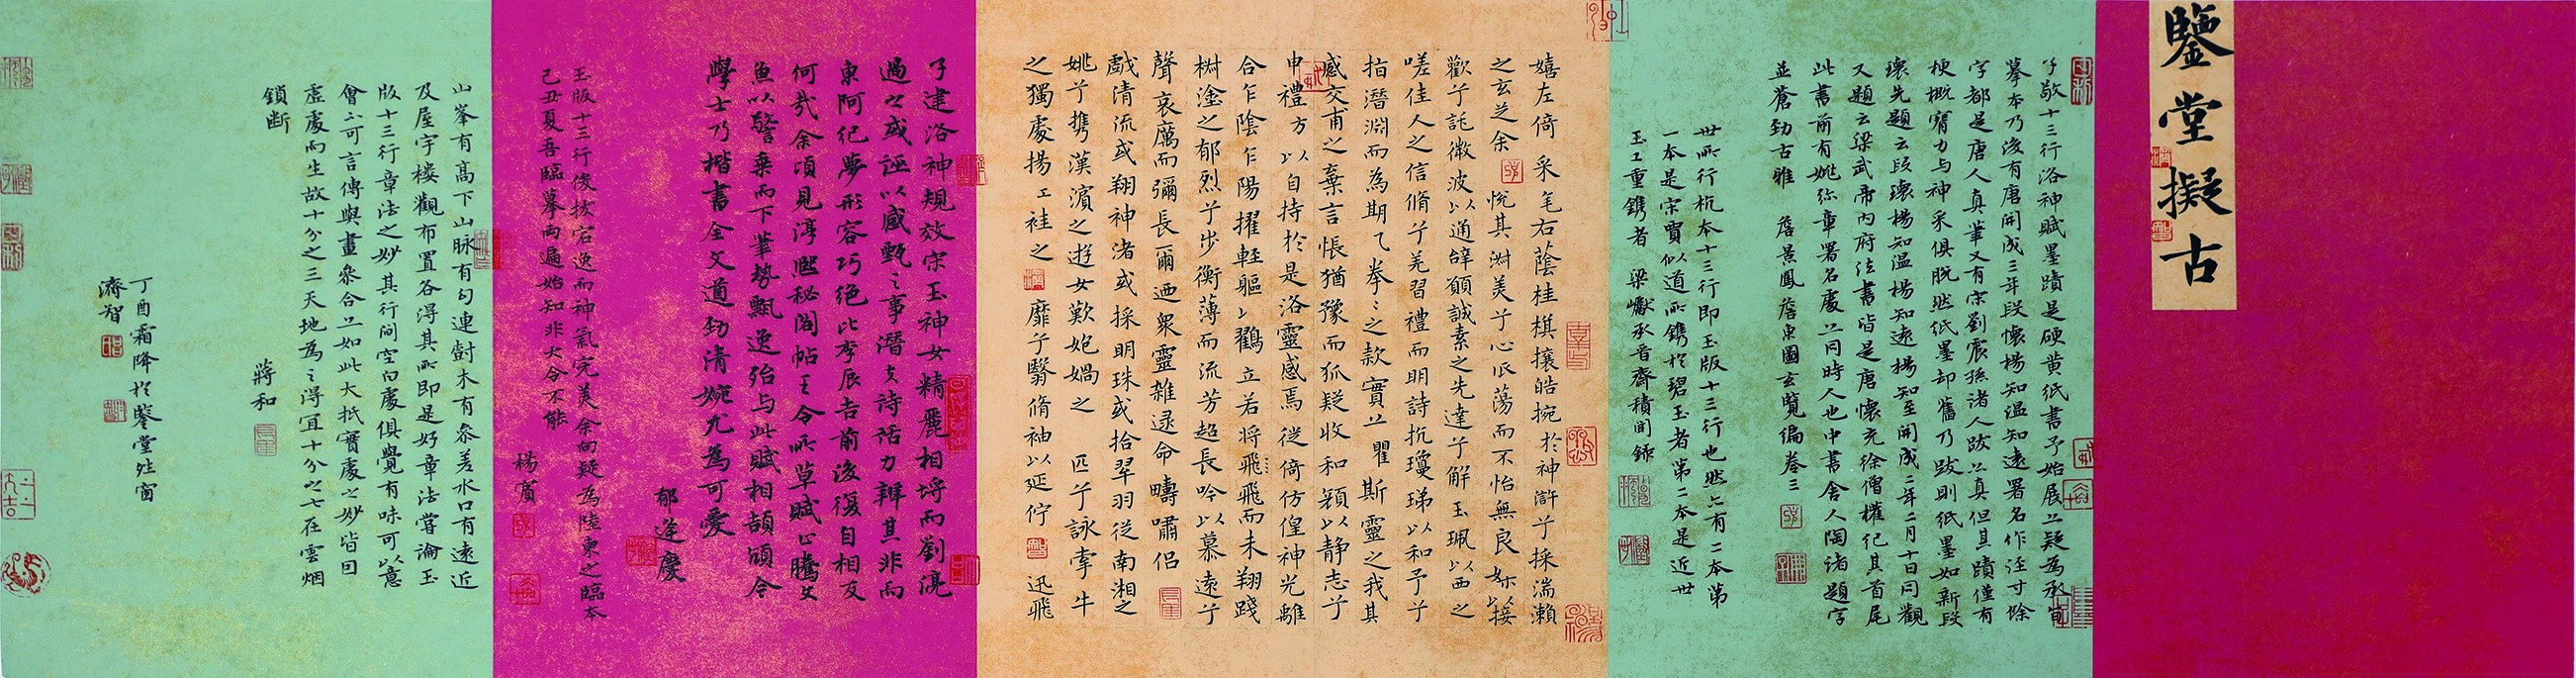 鑒堂擬古
子敬十三行洛神賦墨蹟是硬黄紙書予始展亦疑為永宣
摹本乃後有唐開成三年段懷楊知溫知遠署名作注寸餘
字都是唐人真筆又有宋劉震孫諸人跋亦真但其蹟僅有
梗概精力与神采俱脱然紙墨却舊乃跋則紙墨如新段
瓌先題云段瓌楊知温楊知遠楊知至開成二年二月十日同觀
又題云梁武帝内府法書皆是唐懷充徐僧權記其首尾
此書前有姚弥章署名處亦同時人也中書舍人陶诸題字
並蒼勁古雅 詹景鳳詹東圖玄覽編卷三
世所行杭本十三行即玉版十三行也然亦有二本第
一本是宋賈似道所鐫於碧玉者第二本是近世
玉工重鐫者 梁巘承晋齋積聞錄
嬉左倚 采毛右蔭桂棋攘皓捥於神滸兮採湍瀨
之玄芝余 悅其淋美兮心𠂢蕩而不怡無良媒以接
歡兮託微波以通辝願誠素之先達兮解玉珮以西之
嗟佳人之信脩兮羌習禮而明詩抗瓊珶以和予兮
指潛淵而為期乙拳之款實亦 瞿 斯靈之我其
感交甫之棄言悵猶豫而狐疑收和顏以静志兮
申禮方以自持於是洛靈感焉徙倚仿偟神光離
合乍陰乍陽擢輕軀以鶴立若将飛飛而未翔踐
樹塗之郁烈兮步衡薄而流芳超長吟以慕遠兮
聲哀厲而彌長爾迺衆靈雜逯命疇嘯侣
戲清流或翔神渚或採明珠或拾翠羽從南湘之
姚兮携漢濱之遊女歎匏媧之 匹兮詠牽牛
之獨處揚工袿之 靡兮翳脩袖以延佇 迅飛
子建洛神規效宋玉神女精麗相埒而劉淣
過之或誣以感甄之事潛夫詩話力辯其非而
東阿纪夢形容巧絕比李辰吉前後復自相反
何哉余頃見淳熙秘閣帖王令所草賦心騰文
魚以警乘而下筆勢飄逸殆与此賦相頡頏今
學士乃楷書全文道勁清婉尤為可愛
郁逢慶
玉版十三行俊拔宕逸而神氣完美余向疑為陸柬之臨本
己丑夏吾臨摹两遍始知非大令不能
楊賓
山峯有高下山脉有勾連樹木有叅差水口有遠近
及屋宇樓觀布置各得其所即是好章法嘗論玉
版十三行章法之妙其行间空白處俱覺有味可以意
會亦可言傳與畫叅合亦如此大抵實處之妙皆因
虛處而生故十分之三天地為之得宜十分之七在雲烟
鎖断
蔣和
丁酉霜降於鑒堂北窗
濟智